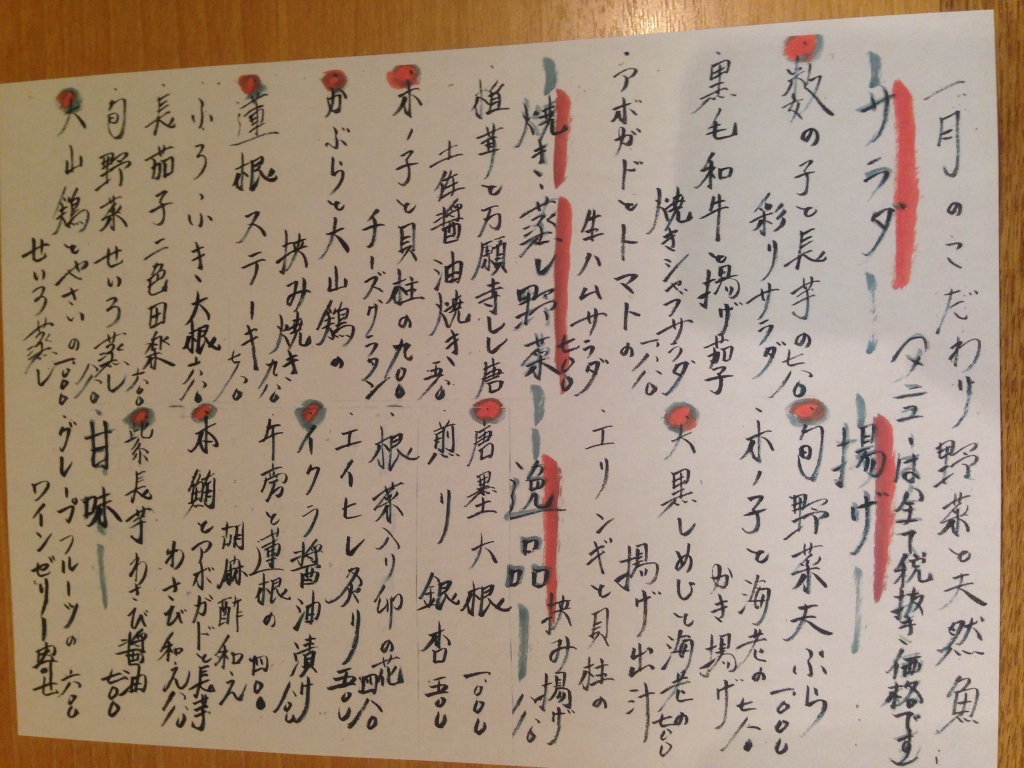 一月のこだわり野菜と天然魚
メニューは全て税抜き価格です
サラダ
数の子と長芋の
彩りサラダ 七八〇
黒毛和牛と揚げ茄子
焼きシャブサラダ 一、一八〇
アボガドとトマトの
生ハムサラダ 七〇〇
焼き・蒸し野菜
椎茸と万願寺しし唐
土佐醤油焼き 五八〇
木ノ子と貝柱の
チーズグラタン 九〇〇
かぶらと大山鶏の
挟み焼き 九八〇
蓮根ステーキ 七八〇
小ろ小き大根 六八〇
長茄子二色田楽 六八〇
旬野菜せいろ蒸し 八八〇
大山鶏とやさいの
せいろ蒸し 一、一〇〇
揚げ
旬野菜天ぷら 一、〇〇〇
木ノ子と海老の
かき揚げ 七八〇
大黒しめじと海老の
揚げ出汁 七〇〇
エリンギと貝柱の
挟み揚げ 八八〇
逸品
唐墨大根 一、〇〇〇
煎り銀杏 五〇〇
根菜入り卯の花 四八〇
エイヒレ炙り 五〇〇
イクラ醤油漬け 八八〇
牛蒡と蓮根の
胡麻酢和え 四八〇
本鮪とアボガドと長芋
わさび和え 八八〇
紫長芋わさび醤油 七〇〇
甘味
グレープフルーツの
ワインゼリー寄せ 六〇〇